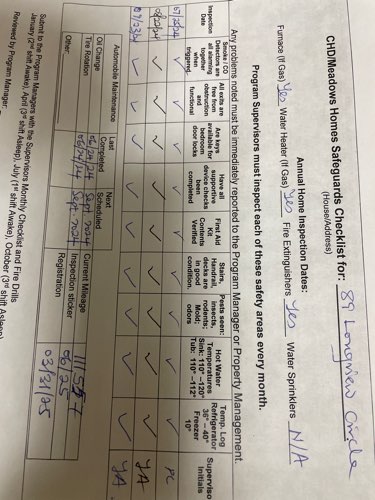 CHD/Meadows Homes Safeguards Checklist for: 89 Longview Circle
(House/Address)
Annual Home Inspection Dates:
Furnace (If Gas) Yes Water Heater (If Gas) Yes Fire Extinguishers Yes Water Sprinklers N/A
Program Supervisors must inspect each of these safety areas every month.
Any problems noted must be immediately reported to the Program Manager or Property Management.
Inspection Date
Smoke / CO Detectors are all alarming together when triggered
All exits are free from obstruction and functional
Are keys available for bedroom door locks
Have all supportive device checks been completed
First Aid Kit Contents Verified
Stairs, Handrail, decks are in good condition.
Pests seen: insects, rodents; Mold; odors
Hot Water Temperatures Sink: 110° -120° Tub: 110° -112°
Temp. Log Refrigerator 36° – 40° Freezer 10°
Supervisor Initials
✓ ✓ ✓ ✓ ✓ ✓ ✓ ✓ ✓ PC
✓ ✓ ✓ ✓ ✓ ✓ ✓ ✓ ✓ YA
✓ ✓ ✓ ✓ ✓ ✓ ✓ ✓ ✓ YA
Automobile Maintenance Last Completed Next Scheduled
Oil Change 06/24/24 Sept. 2024 Current Mileage
Tire Rotation 06/24/24 Sept. 2024 Inspection sticker 06/25
Other: Registration 03/31/25
Submit to the Program Manager with the Supervisors Monthly Checklist and Fire Drills
January (2nd shift Awake), April (3rd shift Asleep), July (1st shift Awake), October (3rd shift Asleep)
Reviewed by Program Manager: